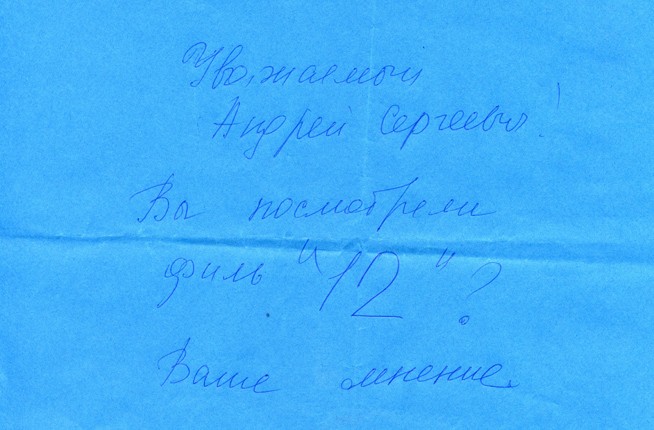 Уважаемый
Андрей Сергеевич!
Вы посмотрели
фильм "12"?
Ваше мнение.